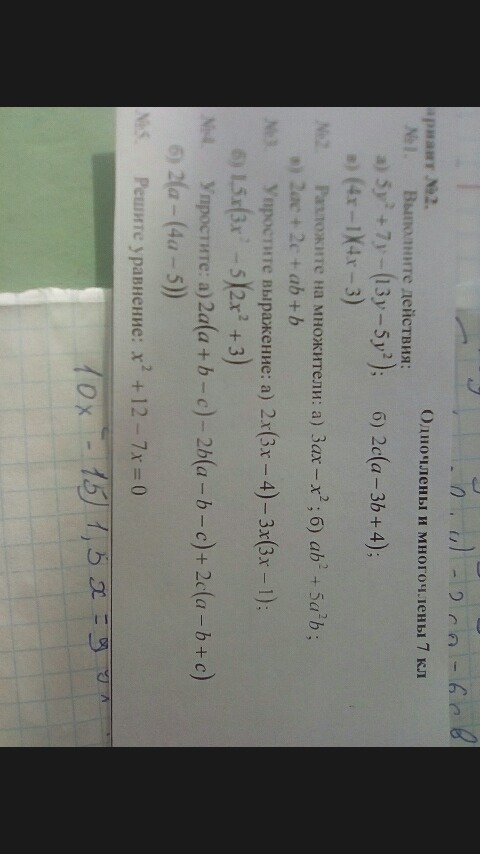 Вариант №2.
Одночлены и многочлены 7 кл
№1. Выполните действия:
а) 5y² + 7y − (13y − 5y²); б) 2c(a − 3b + 4);
в) (4x − 1)(4x − 3)
№2. Разложите на множители: а) 3ax − x²; б) ab² + 5a²b;
в) 2ac + 2c + ab + b
№3. Упростите выражение: а) 2x(3x − 4) − 3x(3x − 1);
б) 1,5x(3x² − 5)(2x² + 3)
№4. Упростите: а) 2a(a + b − c) − 2b(a − b − c) + 2c(a − b + c)
б) 2(a − (4a − 5))
№5. Решите уравнение: x² + 12 − 7x = 0